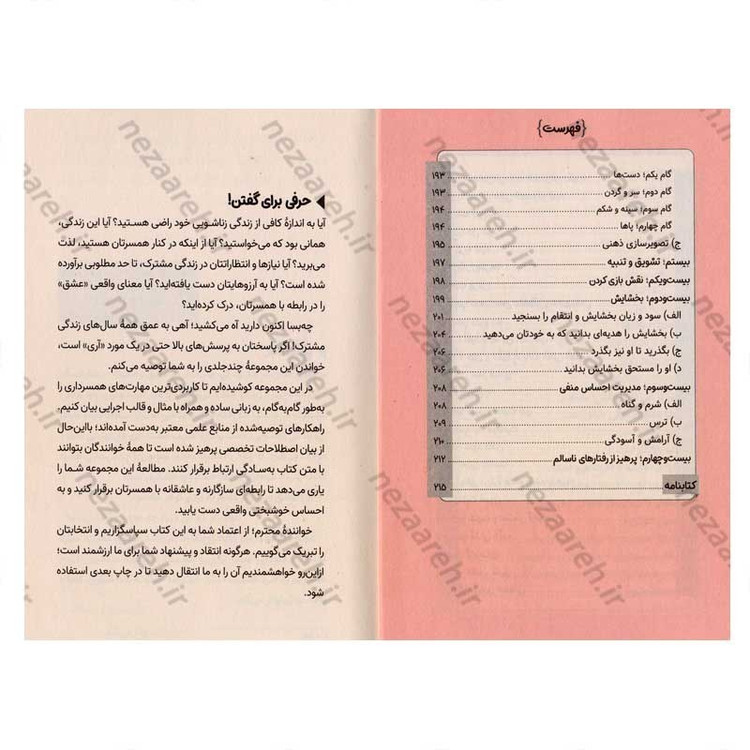 {فهرست}
گام یکم؛ دست‌ها ۱۹۳
گام دوم؛ سر و گردن ۱۹۳
گام سوم؛ سینه و شکم ۱۹۴
گام چهارم؛ پاها ۱۹۴
ج) تصویرسازی ذهنی ۱۹۵
بیستم؛ تشویق و تنبیه ۱۹۷
بیست‌ویکم؛ نقش بازی کردن ۱۹۸
بیست‌ودوم؛ بخشایش ۱۹۹
الف) سود و زیان بخشایش و انتقام را بسنجید ۲۰۱
ب) بخشایش را هدیه‌ای بدانید که به خودتان می‌دهید ۲۰۴
ج) بگذرید تا او نیز بگذرد ۲۰۶
د) او را مستحق بخشایش بدانید ۲۰۶
بیست‌وسوم؛ مدیریت احساس منفی ۲۰۸
الف) شرم و گناه ۲۰۸
ب) ترس ۲۰۹
ج) آرامش و آسودگی ۲۱۰
بیست‌وچهارم؛ پرهیز از رفتارهای ناسالم ۲۱۲
کتابنامه ۲۱۵
حرفی برای گفتن!
آیا به اندازهٔ کافی از زندگی زناشویی خود راضی هستید؟ آیا این زندگی،
همانی بود که می‌خواستید؟ آیا از اینکه در کنار همسرتان هستید، لذت
می‌برید؟ آیا نیازها و انتظاراتتان در زندگی مشترک، تا حد مطلوبی برآورده
شده است؟ آیا به آرزوهایتان دست یافته‌اید؟ آیا معنای واقعی «عشق»
را در رابطه با همسرتان، درک کرده‌اید؟
چه‌بسا اکنون دارید آه می‌کشید؛ آهی به عمق همهٔ سال‌های زندگی
مشترک! اگر پاسختان به پرسش‌های بالا حتی در یک مورد «آری» است،
خواندن این مجموعهٔ چندجلدی را به شما توصیه می‌کنم.
در این مجموعه کوشیده‌ایم تا کاربردی‌ترین مهارت‌های همسرداری را
به‌طور گام‌به‌گام، به زبانی ساده و همراه با مثال و قالب اجرایی بیان کنیم.
راهکارهای توصیه‌شده از منابع علمی معتبر به‌دست آمده‌اند؛ بااین‌حال
از بیان اصطلاحات تخصصی پرهیز شده است تا همهٔ خوانندگان بتوانند
با متن کتاب به‌سادگی ارتباط برقرار کنند. مطالعهٔ این مجموعه شما را
یاری می‌دهد تا رابطه‌ای سازگارانه و عاشقانه با همسرتان برقرار کنید و به
احساس خوشبختی واقعی دست یابید.
خوانندهٔ محترم؛ از اعتماد شما به این کتاب سپاسگزاریم و انتخابتان
را تبریک می‌گوییم. هرگونه انتقاد و پیشنهاد شما برای ما ارزشمند است؛
ازاین‌رو خواهشمندیم آن را به ما انتقال دهید تا در چاپ بعدی استفاده
شود.
nezaareh.ir